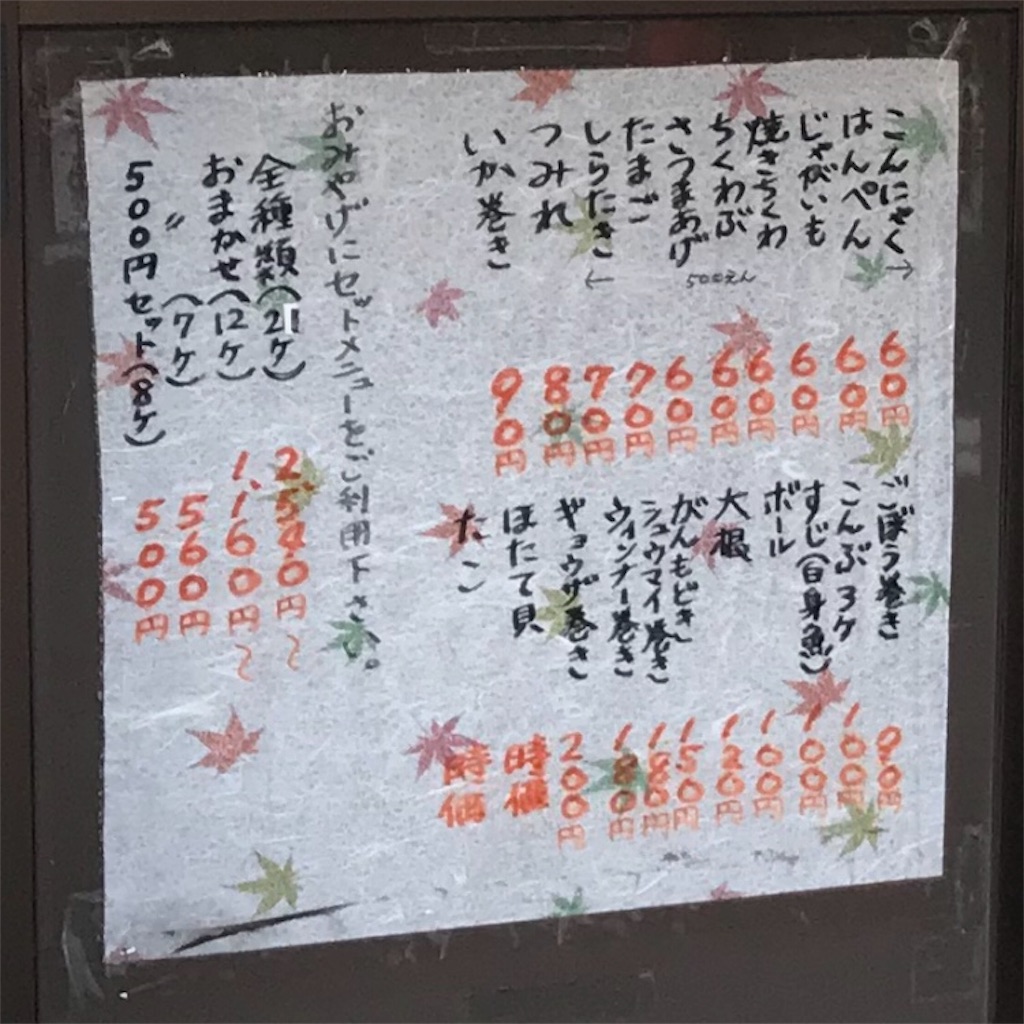 こんにゃく 60円
はんぺん 60円
じゃがいも 60円
焼きちくわ 60円
ちくわぶ 60円
さつまあげ 60円
たまご 70円
しらたき 70円
つみれ 80円
いか巻き 90円
← 500えん →
ごぼう巻き 90円
こんぶ3ケ 100円
すじ(白身魚) 100円
ボール 100円
大根 120円
がんもどき 150円
シュウマイ巻き
ウィンナー巻き 180円
ギョウザ巻き 200円
ほたて貝 時価
たこ 時価
おみやげにセットメニューをご利用下さい。
全種類(21ケ) 2,540円〜
おまかせ(12ケ) 1,160円〜
〃 (7ケ) 560円
500円セット(8ケ) 500円